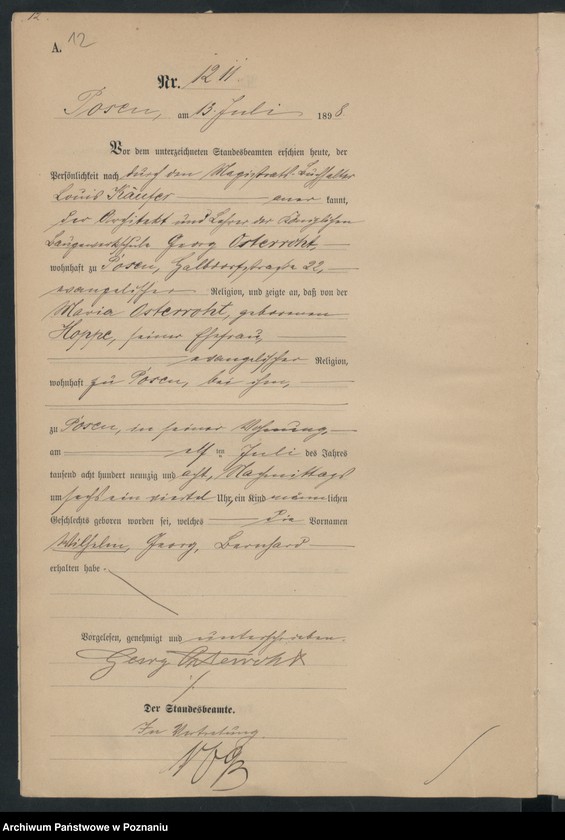 12
A. 12
Nr. 1211
Posen, am 13. Juli 1898
Vor dem unterzeichneten Standesbeamten erschien heute, der
Persönlichkeit nach durch den Magistrats Buchhalter
Louis Käufer anerkannt,
der Architekt und Lehrer der Königlichen
Baugewerkschule Georg Osterroht,
wohnhaft zu Posen, Halbdorfstraße 22,
evangelischer Religion, und zeigte an, daß von der
Maria Osterroht, geborenen
Hoppe, seiner Ehefrau,
evangelischer Religion,
wohnhaft zu Posen, bei ihm,
zu Posen, in seiner Wohnung,
am elften Juli des Jahres
tausend acht hundert neunzig und acht, Nachmittags
um sechs ein viertel Uhr, ein Kind männlichen
Geschlechts geboren worden sei, welches die Vornamen
Wilhelm, Georg, Bernhard
erhalten habe.
Vorgelesen, genehmigt und unterschrieben.
Georg Osterroht
Der Standesbeamte.
In Vertretung
Archiwum Państwowe w Poznaniu